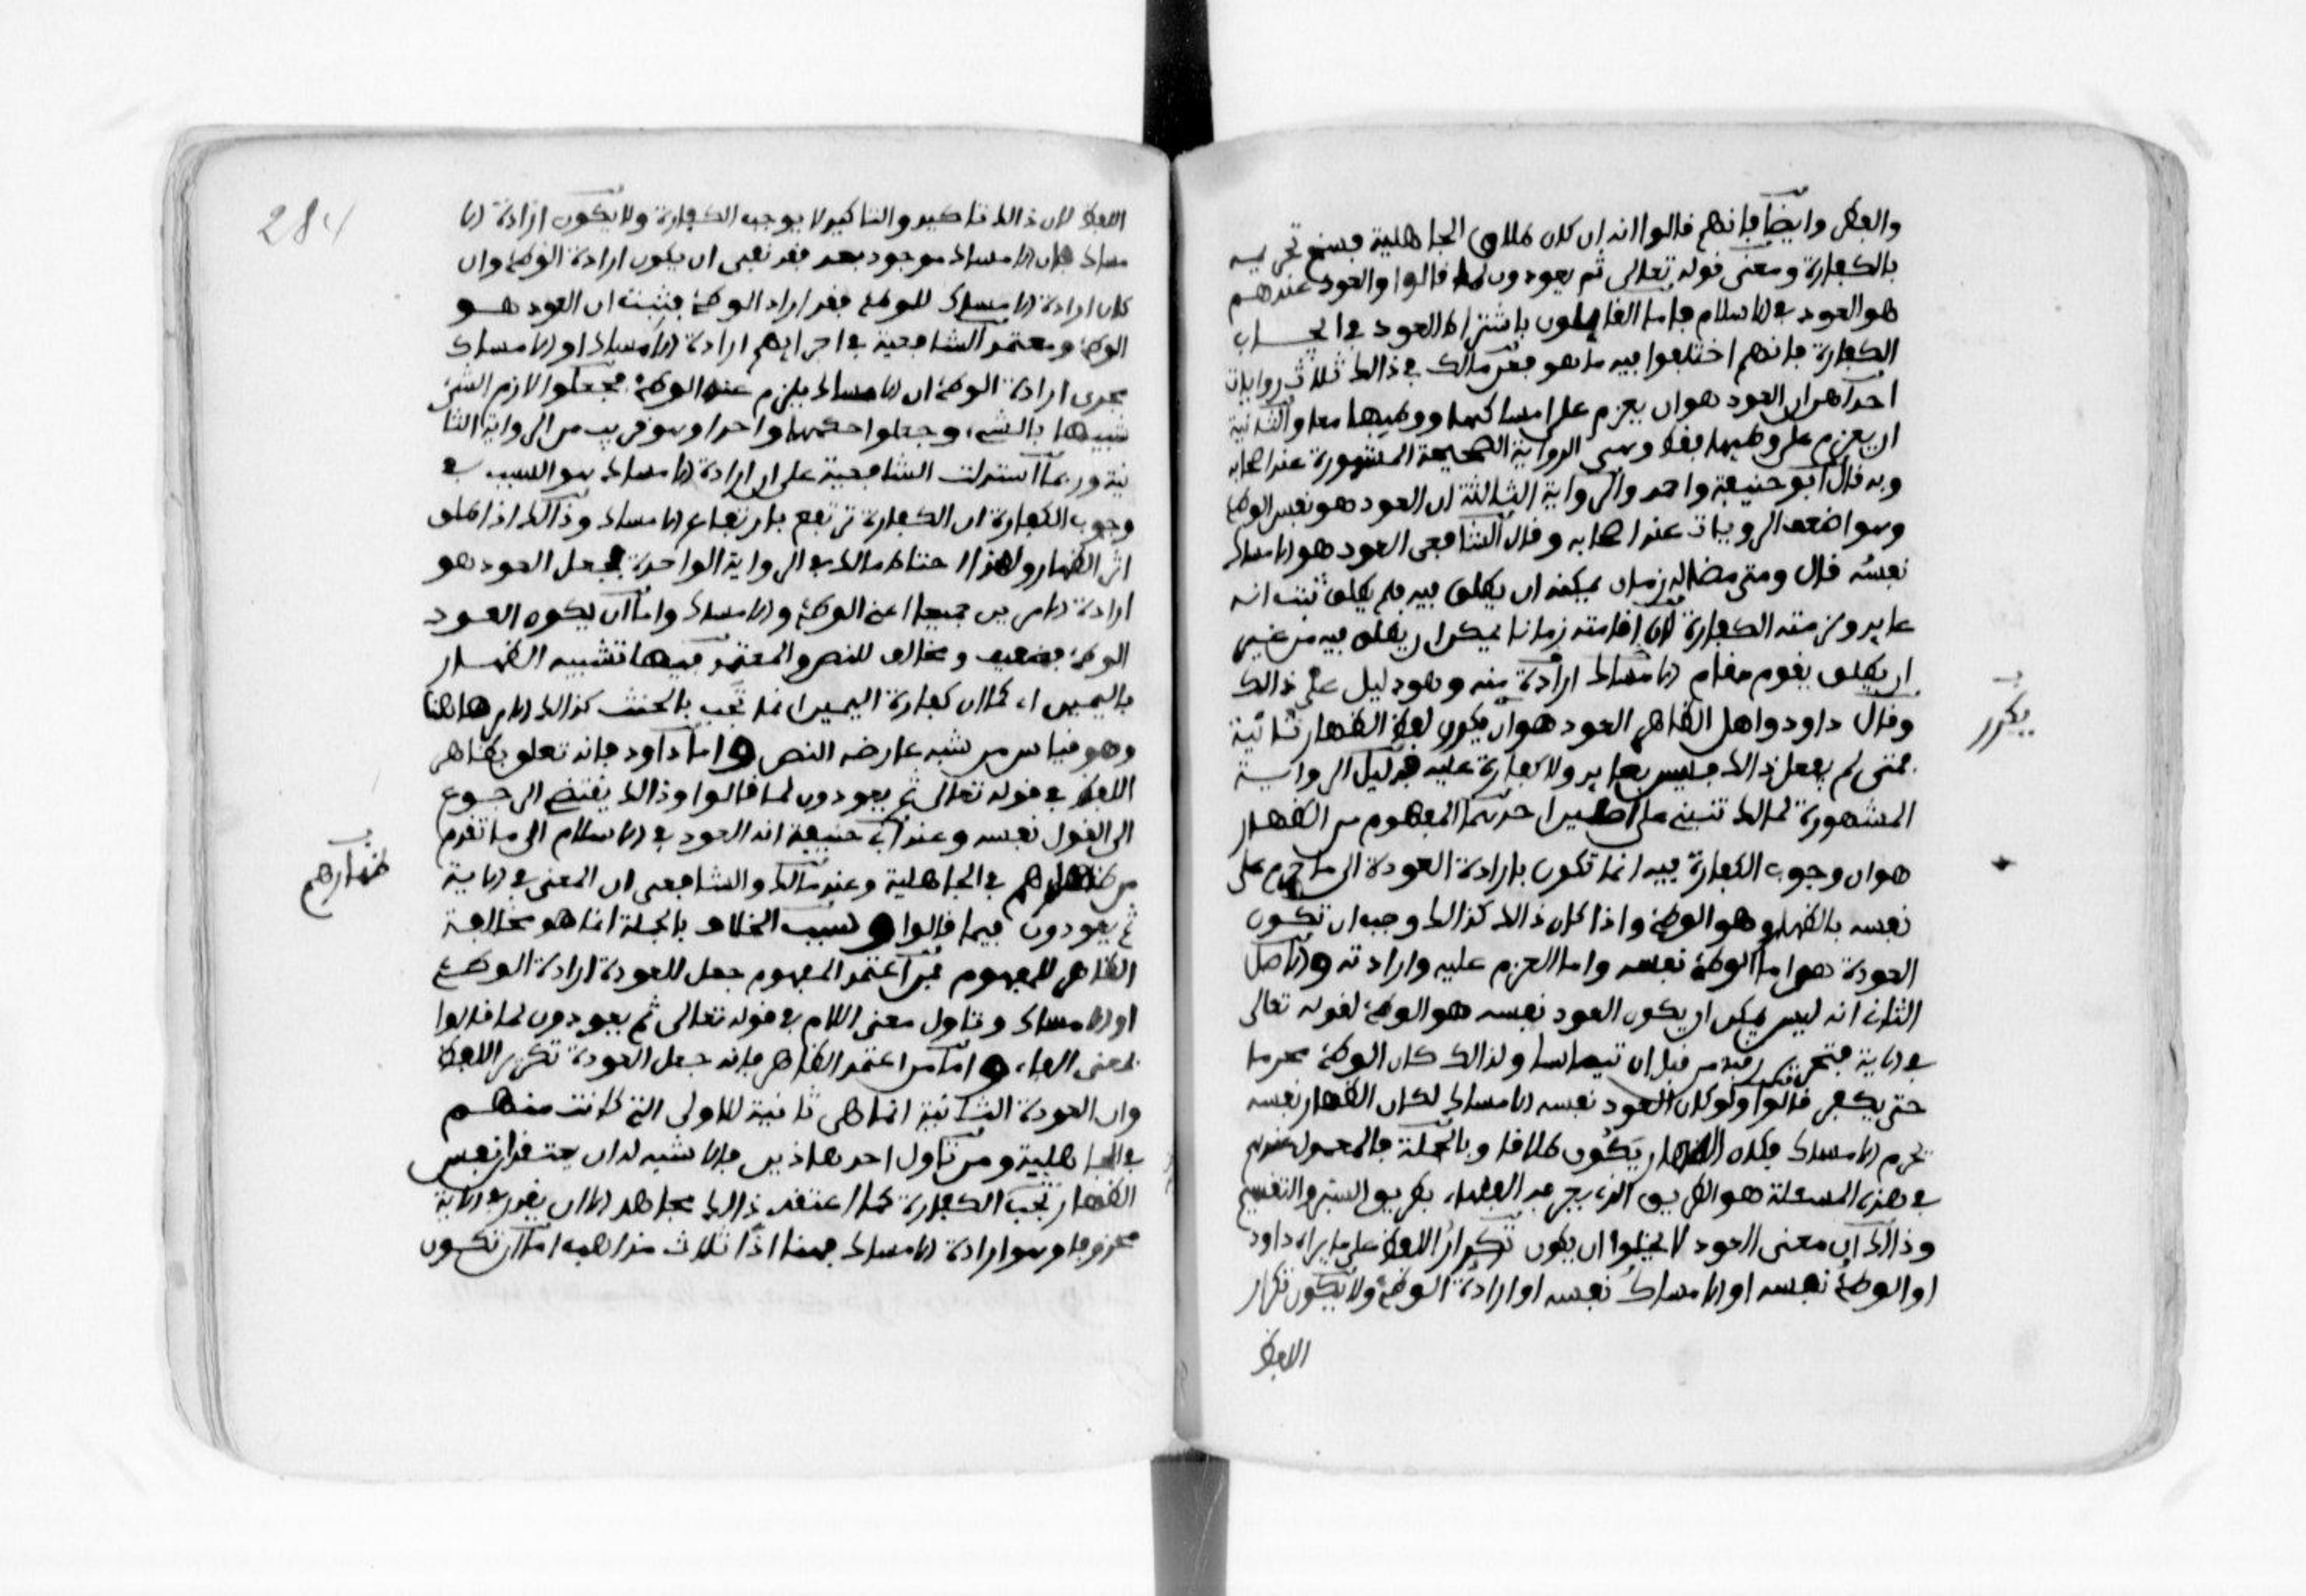 والفطر وايضا فإنهم قالوا انه ان كان طلاق الجاهلية فنسخ تحريمه
بالكفارة ومعنى قوله تعالى ثم يعودون لما قالوا والعود عندهم
هو العود في الاسلام فاما القايلون باشتراط العود في ايجاب
الكفارة فإنهم اختلفوا فيه ما هو فعن مالك في ذالك ثلاث روايات
احداهن ان العود هو ان يعزم على امساكها ووطيها معا والثانية
ان يعزم على وطيها فقط وهي الرواية الصحيحة المشهورة عند اصحابه
وبه قال ابو حنيفة واحمد والرواية الثالثة ان العود هو نفس الوطء
وهو اضعف الرويات عند اصحابه وقال الشافعي العود هو الامساك
نفسه قال ومتى مضا له زمان يمكنه ان يطلق فيه فلم يطلق ثبت انه
عايد ولزمته الكفارة لان اقامته زمانا يمكن ان يطلق فيه من غير
ان يطلق يقوم مقام الامساك ارادة منه وهو دليل على ذالك
وقال داود واهل الظاهر العود هو ان يكون لفظ الظهار ثانية
فمتى لم يفعل ذالك فليس بعايد ولا كفارة عليه فدليل الرواية
المشهورة لمالك تنبني على اصلين احدهما المفهوم من الظهار
هو ان وجوب الكفارة فيه انما تكون بارادة العودة الى ما حرم على
نفسه بالظهار وهو الوطء واذا كان ذالك كذالك وجب ان تكون
العودة هو اما الوطء نفسه واما العزم عليه وارادته والاصل
الثاني انه ليس يمكن ان يكون العود نفسه هو الوطء لقوله تعالى
في الاية فتحرير رقبة من قبل ان تيماسا ولذالك كان الوطء محرما
حتى يكفر قالوا ولو كان العود نفسه الامساك لكان الظهار نفسه
تحرم الامساك فكان الظهار يكون طلاقا وبالجملة فالمعمول عندهم
في هذه المسئلة هو الطريق الذي يعرفه الفقهاء بطريق السبر والتقسيم
وذالك ان معنى العود لا يخلوا ان يكون تكرار اللفظ على ما يراه داود
او الوطء نفسه او الامساك نفسه او ارادة الوطء ولا يكون تكرار
اللفظ
يكرر
284
اللفظ لان ذالك تاكيد والتاكيد لا يوجب الكفارة ولا يكون ارادة الا
مساك فان الامساك موجود بعد فقد نفى ان يكون ارادة الوطء وان
كان ارادة الامساك للوطء فقد اراد الوطء فثبت ان العود هو
الوطء ومعتمد الشافعية في اجرايهم ارادة الامساك او الامساك
مجرى ارادة الوطء ان الامساك يلزم عنه الوطء فجعلوا لازم الشئ
شبيها بالشيء وجعلوا حكمهما واحدا وهو قريب من الرواية الثا
نية وربما استدلت الشافعية على ان ارادة الامساك هو السبب في
وجوب الكفارة ان الكفارة ترتفع بارتفاع الامساك وذالك اذا طلق
اثر الظهار ولهذا احتاط مالك في الرواية الواحدة فجعل العود هو
ارادة الامرين جميعا اعني الوطء والامساك واما ان يكون العود
الوطء فضعيف ومخالف للنص والمعتمد فيها تشبيه الظهار
باليمين اي كما ان كفارة اليمين انما تجب بالحنث كذالك الامر هاهنا
وهو قياس من شبه عارضه النص واما داود فانه تعلق بظاهر
اللفظ في قوله تعالى ثم يعودون لما قالوا وذالك يقتضي الرجوع
الى القول نفسه وعند ابي حنيفة انه العود في الاسلام الى ما تقدم
من ظهارهم في الجاهلية وعند مالك والشافعي ان المعنى في الاية
ظهارهم
ثم يعودون فيما قالوا وسبب الخلاف بالجملة انما هو مخالفة
الظاهر للمفهوم فمن اعتمد المفهوم جعل للعودة ارادة الوطء
او الامساك وتاول معنى اللام في قوله تعالى ثم يعودون لما قالوا
بمعنى الفاء واما من اعتمد الظاهر فانه جعل العودة تكرير اللفظ
وان العودة الثانية انما هي ثانية للاولى التي كانت منهم
في الجاهلية ومن تاول احد هاذين فالاشبه له ان يعتقد ان نفس
الظهار تجب الكفارة كما اعتقد ذالك مجاهد الا ان يقدر في الاية
محذوفا وهو ارادة الامساك فهنا اذا ثلاث مذاهب اما ان تكون